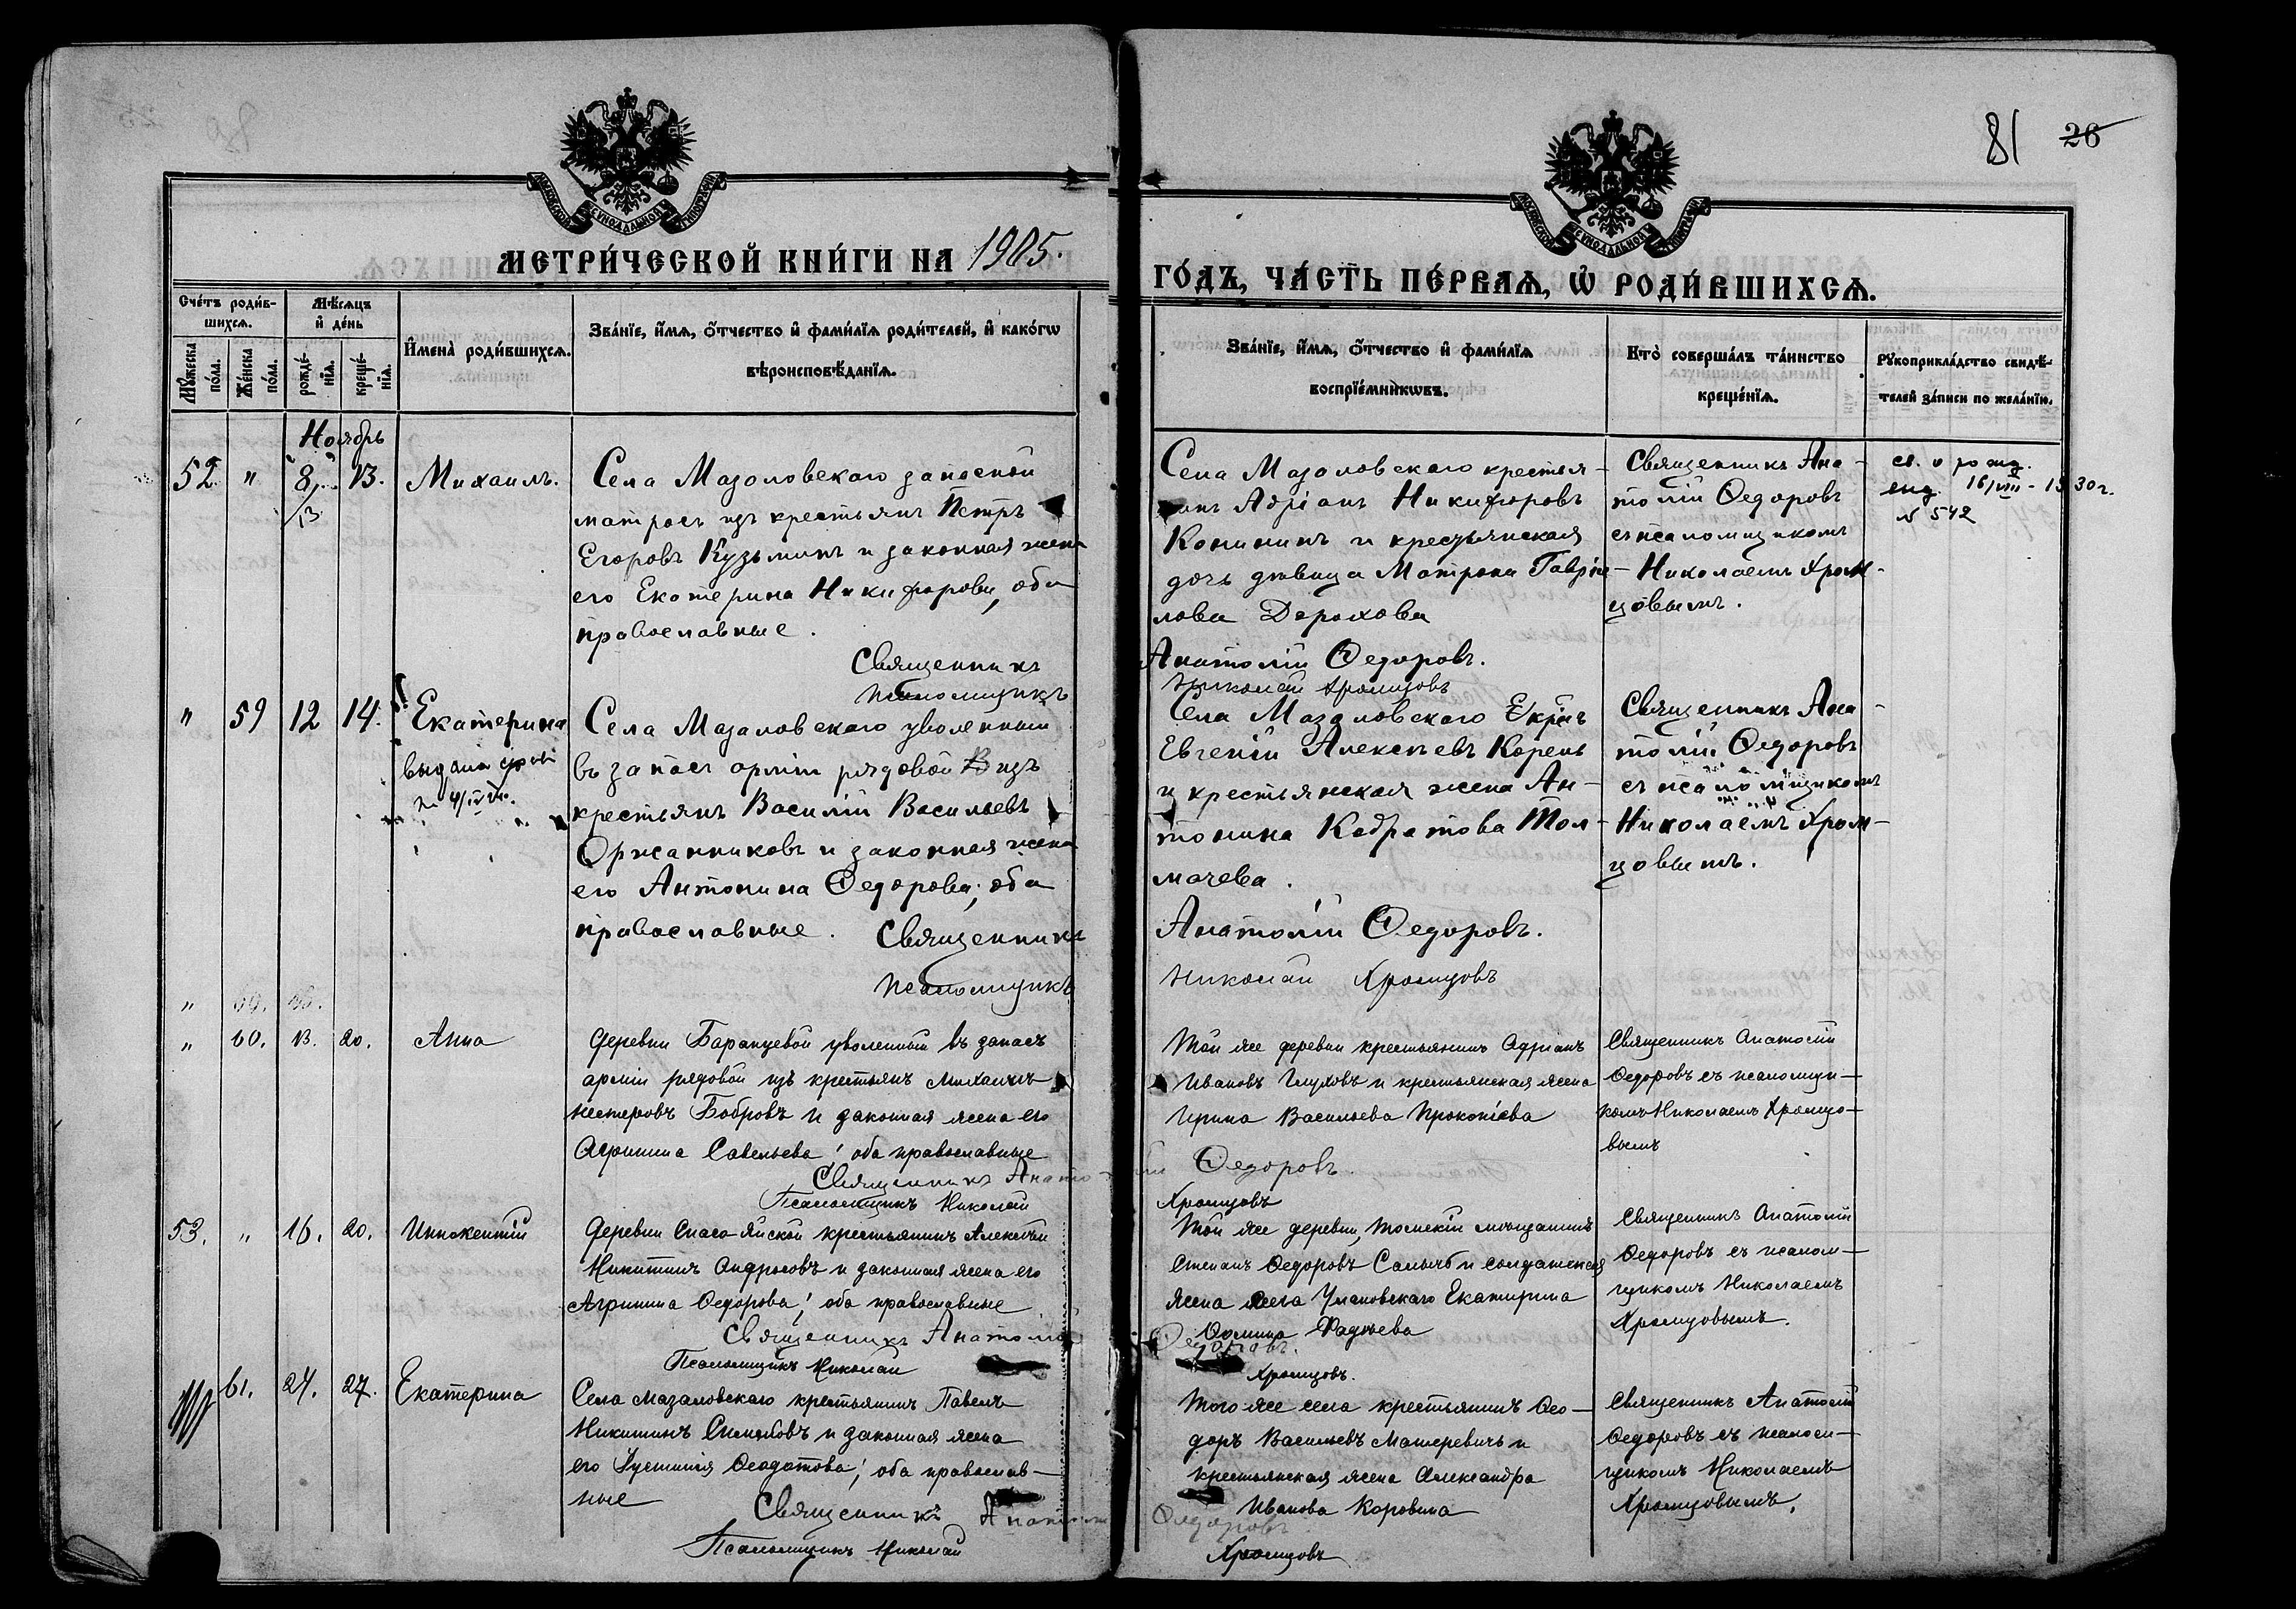 81 26
МОСКОВСКОЙ СѴНОДАЛЬНОЙ ТИПОГРАФІИ
МОСКОВСКОЙ СѴНОДАЛЬНОЙ ТИПОГРАФІИ
МЕТРИ́ЧЕСКОЙ КНИ́ГИ НА 1905.
ГО́ДЪ, ЧА́СТЬ ПЕ́РВАѦ, Ѡ҆ РОДИ́ВШИХСѦ.
Сче́тъ роди́в-
шихсѧ.
Мꙋ́жеска по́ла.
Же́нска по́ла.
Мѣ́сѧцъ
и҆ де́нь
рожде́-
нїѧ.
креще́-
нїѧ.
И҆мена̀ роди́вшихсѧ.
Зва́нїе, и҆́мѧ, ѻ҆́тчество и҆ фами́лїѧ роди́телей, и҆ како́гѡ
вѣроисповѣ́данїѧ.
Зва́нїе, и҆́мѧ, ѻ҆́тчество и҆ фами́лїѧ
воспрїе́мникѡвъ.
Кто̀ соверша́лъ та́инство
креще́нїѧ.
Рꙋкоприкла́дство свидѣ́-
телей за́писи по жела́нїю.
Ноябрь
52 " 8, 13. Михаилъ.
13
Села Мазоловскаго запасной
матросъ изъ крестьянъ Петръ
Егоровъ Кузьминъ и законная жена
его Екатерина Никифорова, оба
православные.
Священникъ
Псаломщикъ
Села Мазоловскаго крестья-
нинъ Адріанъ Никифоровъ
Конининъ и крестьянская
дочь дѣвица Матрона Гаврі-
лова Дорохова
Анатолій Ѳедоровъ.
Николай Хромцовъ
Священникъ Ана-
толій Ѳедоровъ
съ псаломщикомъ
Николаемъ Хром-
цовымъ.
св. о рожд.
выд. 16/VIII - 1930 г.
N 542
" 59 12 14. Екатерина
выдана
Села Мазаловскаго уволенный
въ запасъ арміи рядовой изъ
крестьянъ Василій Васильевъ
Оржанниковъ и законная жена
его Антонина Ѳедорова; оба
православные.
Священникъ
Псаломщикъ
Села Мазаловскаго
Евгеній Алексѣевъ Корень
и крестьянская жена Ан-
тонина Кодратова Тол-
мачева.
Анатолій Ѳедоровъ.
Николай Хромцовъ
Священникъ Ана-
толій Ѳедоровъ
съ псаломщикомъ
Николаемъ Хром-
цовымъ.
" 60. 13. 20. Анна
Деревни Баранцевой уволенный въ запасъ
арміи рядовой изъ крестьянъ Михаилъ
Нестеровъ Бобровъ и законная жена его
Агрипина Савельева; оба православные
Священникъ Анатолій Ѳедоровъ.
Псаломщикъ Николай Хромцовъ
Той же деревни крестьянинъ Адріанъ
Ивановъ Глуховъ и крестьянская жена
Ирина Васильева Прокопіева
Священникъ Анатолій
Ѳедоровъ съ псаломщи-
комъ Николаемъ Хромцо-
вымъ
53. " 16. 20. Иннокентій
Деревни Спасо-Яйской крестьянинъ Алексѣй
Никитинъ Андросовъ и законная жена его
Агрипина Ѳедорова; оба православные
Священникъ Анатолій Ѳедоровъ.
Псаломщикъ Николай Хромцовъ.
Той же деревни, Томскій мѣщанинъ
Степанъ Ѳедоровъ и солдатская
жена села Улановскаго Екатерина
Ѳомина Фадѣева
Священникъ Анатолій
Ѳедоровъ съ псалом-
щикомъ Николаемъ
Хромцовымъ.
61. 24. 27. Екатерина
Села Мазаловскаго крестьянинъ Павелъ
Никитинъ и законная жена
его Устинія Ѳеодотова; оба православ-
ные
Священникъ Анатолій Ѳедоровъ
Псаломщикъ Николай Хромцовъ
Того же села крестьянинъ Ѳео-
доръ Васильевъ Матеревичъ и
крестьянская жена Александра
Иванова Коровина
Священникъ Анатолій
Ѳедоровъ съ псалом-
щикомъ Николаемъ
Хромцовымъ.